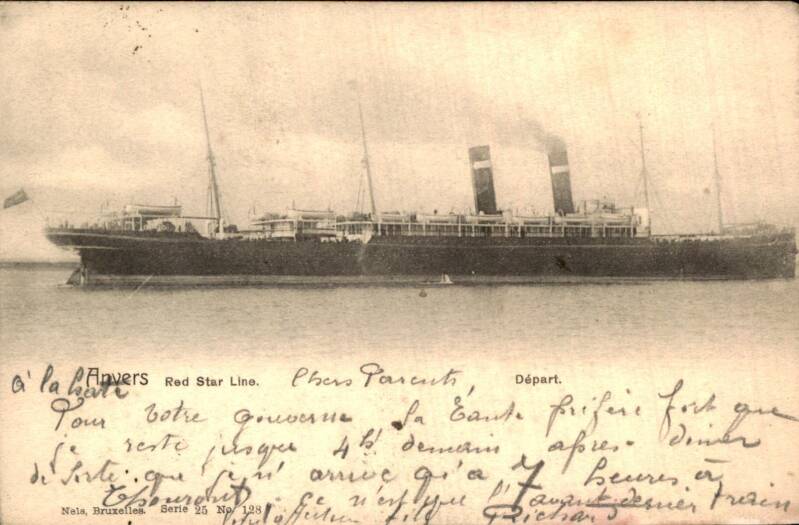 à la hate Anvers Red Star Line. Chers Parents, Départ.
Pour votre gouverne la Tante préfère fort que
je reste jusque 4h demain après-diner
de sorte que je n'arrive qu'a 7 heures à
ce n'est que l'avant dernier train
Nels, Bruxelles. Serie 25 No 128 fils Richard